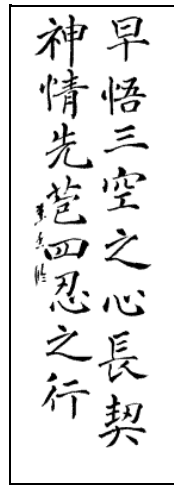 早悟三空之心長契
神情先苞四忍之行